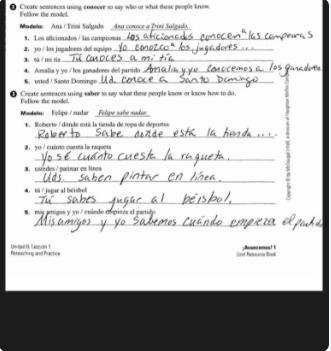 ❷ Create sentences using conocer to say who or what these people know.
Follow the model.
Modelo: Ana / Trini Salgado Ana conoce a Trini Salgado.
1. Los aficionados / las campeonas Los aficionados conocen a las campeonas
2. yo / los jugadores del equipo Yo conozco a los jugadores ...
3. tú / mi tía Tú conoces a mi tía
4. Amalia y yo / los ganadores del partido Amalia y yo conocemos a los ganadores
5. usted / Santo Domingo Ud. conoce a Santo Domingo
❸ Create sentences using saber to say what these people know or know how to do.
Follow the model.
Modelo: Felipe / nadar Felipe sabe nadar.
1. Roberto / dónde está la tienda de ropa de deportes
Roberto sabe dónde está la tienda ....
2. yo / cuánto cuesta la raqueta
Yo sé cuánto cuesta la raqueta.
3. ustedes / patinar en línea
Uds. saben pintar en línea.
4. tú / jugar al béisbol
Tú sabes jugar al béisbol.
5. mis amigos y yo / cuándo empieza el partido
Mis amigos y yo sabemos cuándo empieza el partido
Unidad 6, Lección 1
Reteaching and Practice
¡Avancemos! 1
Unit Resource Book